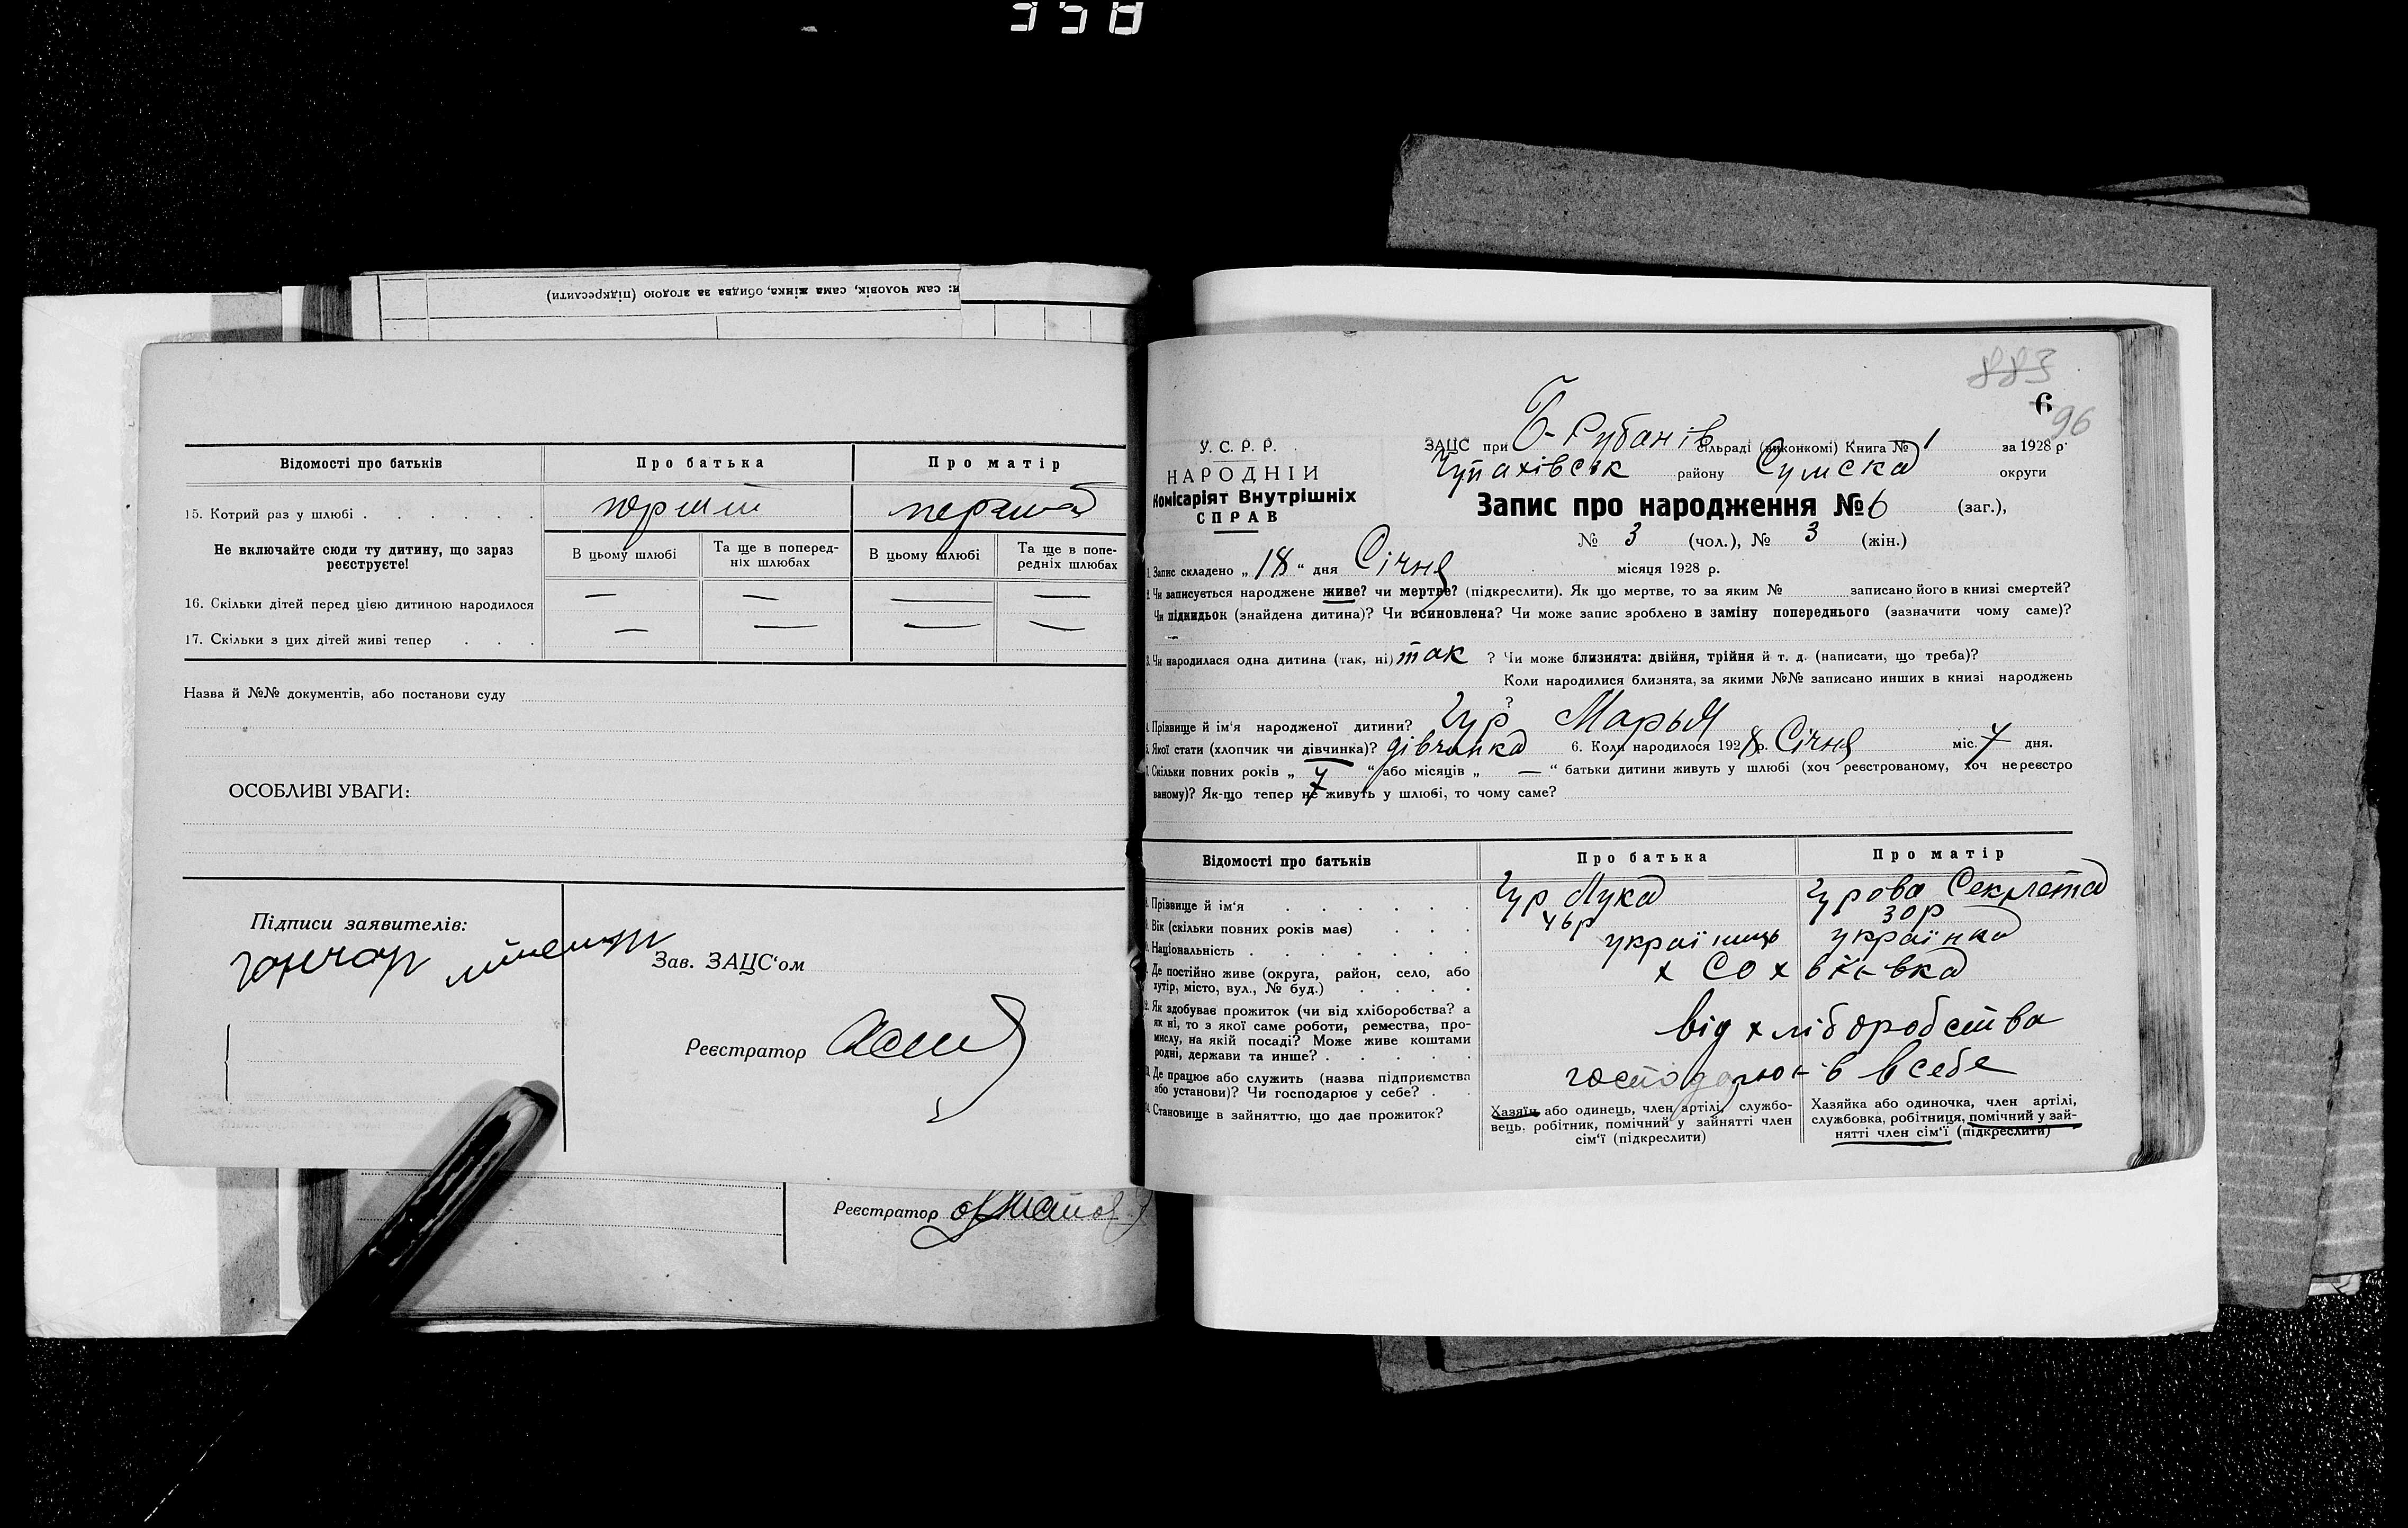 358
и: сам чоловік, сама жінка, обидва за згодою (підкреслити)
Відомості про батьків
Про батька
Про матір
15. Котрий раз у шлюбі
перший
перша
Не включайте сюди ту дитину, що зараз реєструєте!
В цьому шлюбі
Та ще в поперед-
ніх шлюбах
В цьому шлюбі
Та ще в попе-
редніх шлюбах
16. Скільки дітей перед цією дитиною народилося — — — —
17. Скільки з цих дітей живі тепер — — — —
Назва й №№ документів, або постанови суду
ОСОБЛИВІ УВАГИ:
Підписи заявителів:
гончар
Зав. ЗАЦС'ом
Реєстратор
Реєстратор
883
6
96
У. С. Р. Р.
НАРОДНІЙ
Комісаріят Внутрішніх
СПРАВ
ЗАЦС при Б-Рубанів сільраді (виконкомі) Книга № 1 за 1928 р.
Чупахівськ району Сумська округи
Запис про народження № 6 (заг.),
№ 3 (чол.), № 3 (жін.)
1. Запис складено „18“ дня Січня місяця 1928 р.
2. Чи записується народжене живе? чи мертве? (підкреслити). Як що мертве, то за яким № записано його в книзі смертей?
Чи підкидьок (знайдена дитина)? Чи всиновлена? Чи може запис зроблено в заміну попереднього (зазначити чому саме)?
—
3. Чи народилася одна дитина (так, ні) так ? Чи може близнята: двійня, трійня й т. д. (написати, що треба)?
Коли народилися близнята, за якими №№ записано инших в книзі народжень
?
4. Прізвище й ім'я народженої дитини? Гур Марья
5. Якої стати (хлопчик чи дівчинка)? дівчинка 6. Коли народилося 1928 р. Січня міс. 7 дня.
7. Скільки повних років „7“ або місяців „—“ батьки дитини живуть у шлюбі (хоч реєстрованому, хоч нереєстро
ваному)? Як-що тепер не живуть у шлюбі, то чому саме?
Відомості про батьків
Про батька
Про матір
8. Прізвище й ім'я
Гур Лука
Гурова Секлета
9. Вік (скільки повних років має)
46р
30р
10. Національність
українець
українка
11. Де постійно живе (округа, район, село, або
хутір, місто, вул., № буд.)
12. Як здобуває прожиток (чи від хліборобства? а
як ні, то з якої саме роботи, ремества, про-
мислу, на якій посаді? Може живе коштами
родні, держави та инше?
від хліборобства
13. Де працює або служить (назва підприємства
або установи)? Чи господарює у себе?
в себе
14. Становище в зайняттю, що дає прожиток?
Хазяїн або одинець, член артілі, службо-
вець, робітник, помічний у зайнятті член
сім'ї (підкреслити)
Хазяйка або одиночка, член артілі,
службовка, робітниця, помічний у зай-
нятті член сім'ї (підкреслити)